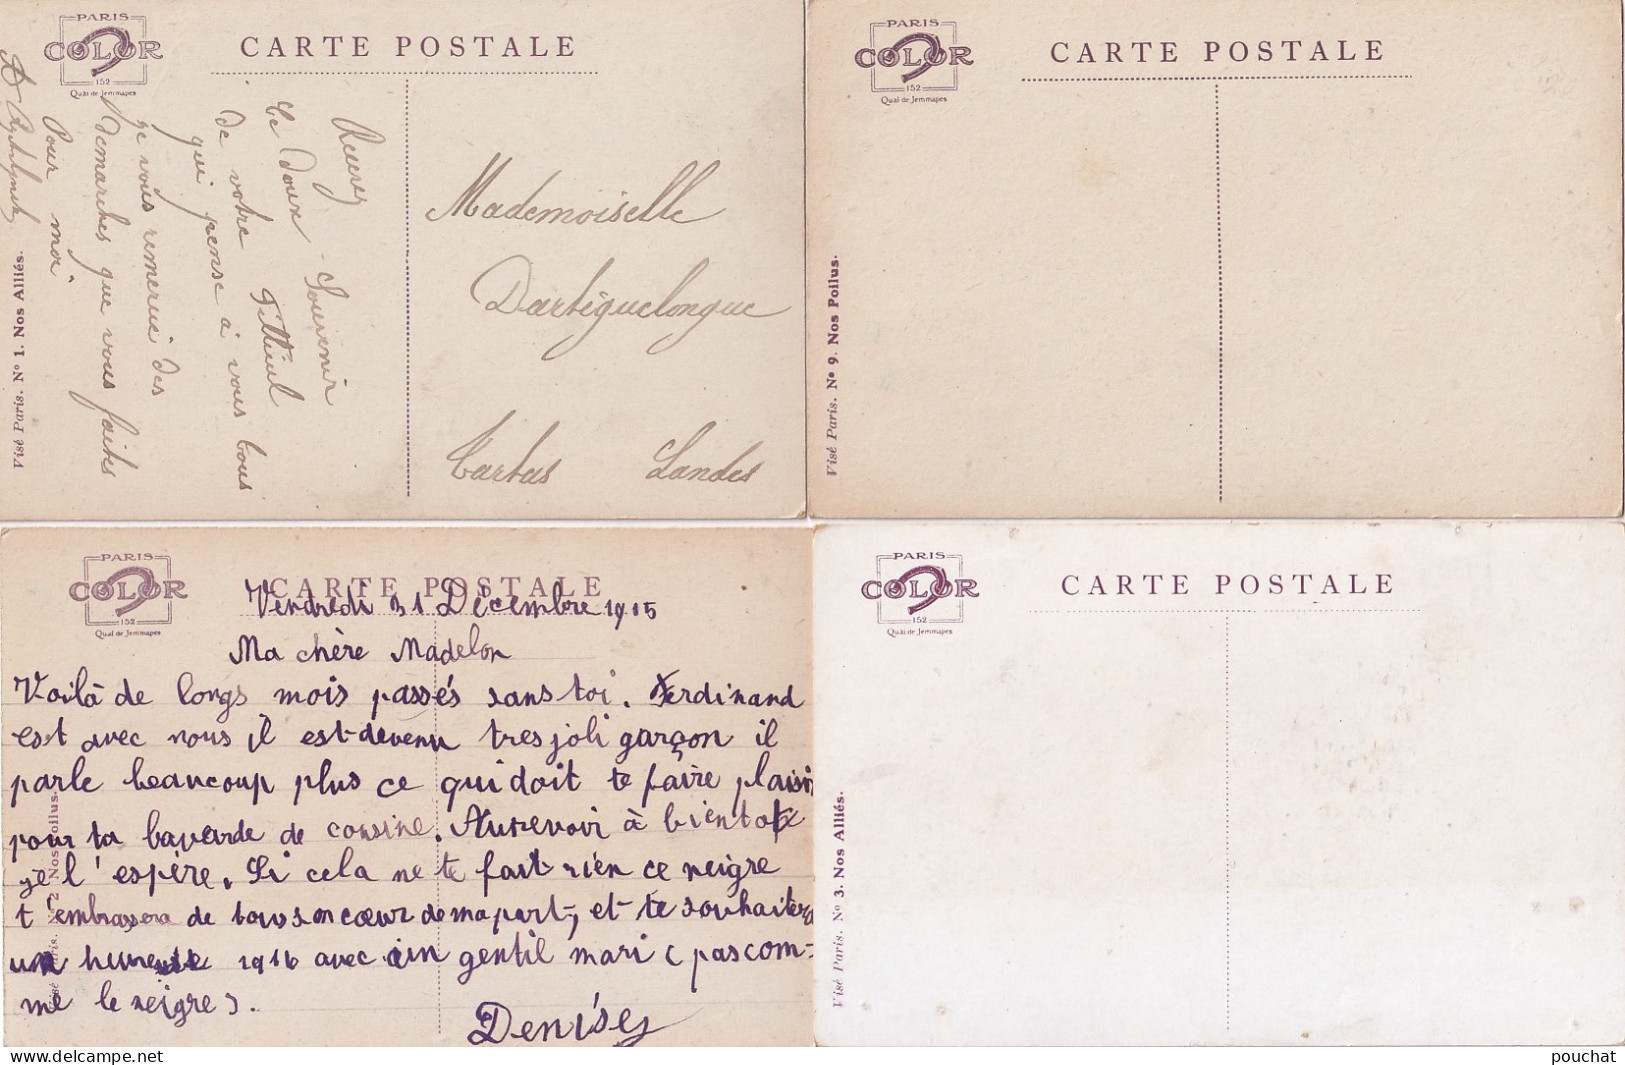 PARIS
COLOR
152
Quai de Jemmapes
CARTE POSTALE
Recevez
Le doux Souvenir
de votre Filleul
qui pense à vous tous
je vous remercie des
démarches que vous faites
Pour moi
Visé Paris. No 1. Nos Alliés.
Mademoiselle
Dartiguelongue
Tartas Landes
PARIS
COLOR
152
Quai de Jemmapes
CARTE POSTALE
Visé Paris. No 9. Nos Poilus.
PARIS
COLOR
152
Quai de Jemmapes
CARTE POSTALE
Vendredi 31 Décembre 1915
Ma chère Madelon
Voilà de longs mois passés sans toi. Ferdinand
est avec nous il est devenu tres joli garçon il
parle beaucoup plus ce qui doit te faire plaisir
pour ta bavarde de cousine. Aurevoir à bientot
je l'espère. Si cela ne te fait rien ce neigre
t'embrassera de tous son cœur de ma part, et te souhaitera
un heureuse 1916 avec un gentil mari (pas com-
me le neigre).
Denisey
PARIS
COLOR
152
Quai de Jemmapes
CARTE POSTALE
Visé Paris. No 3. Nos Alliés.
pouchat